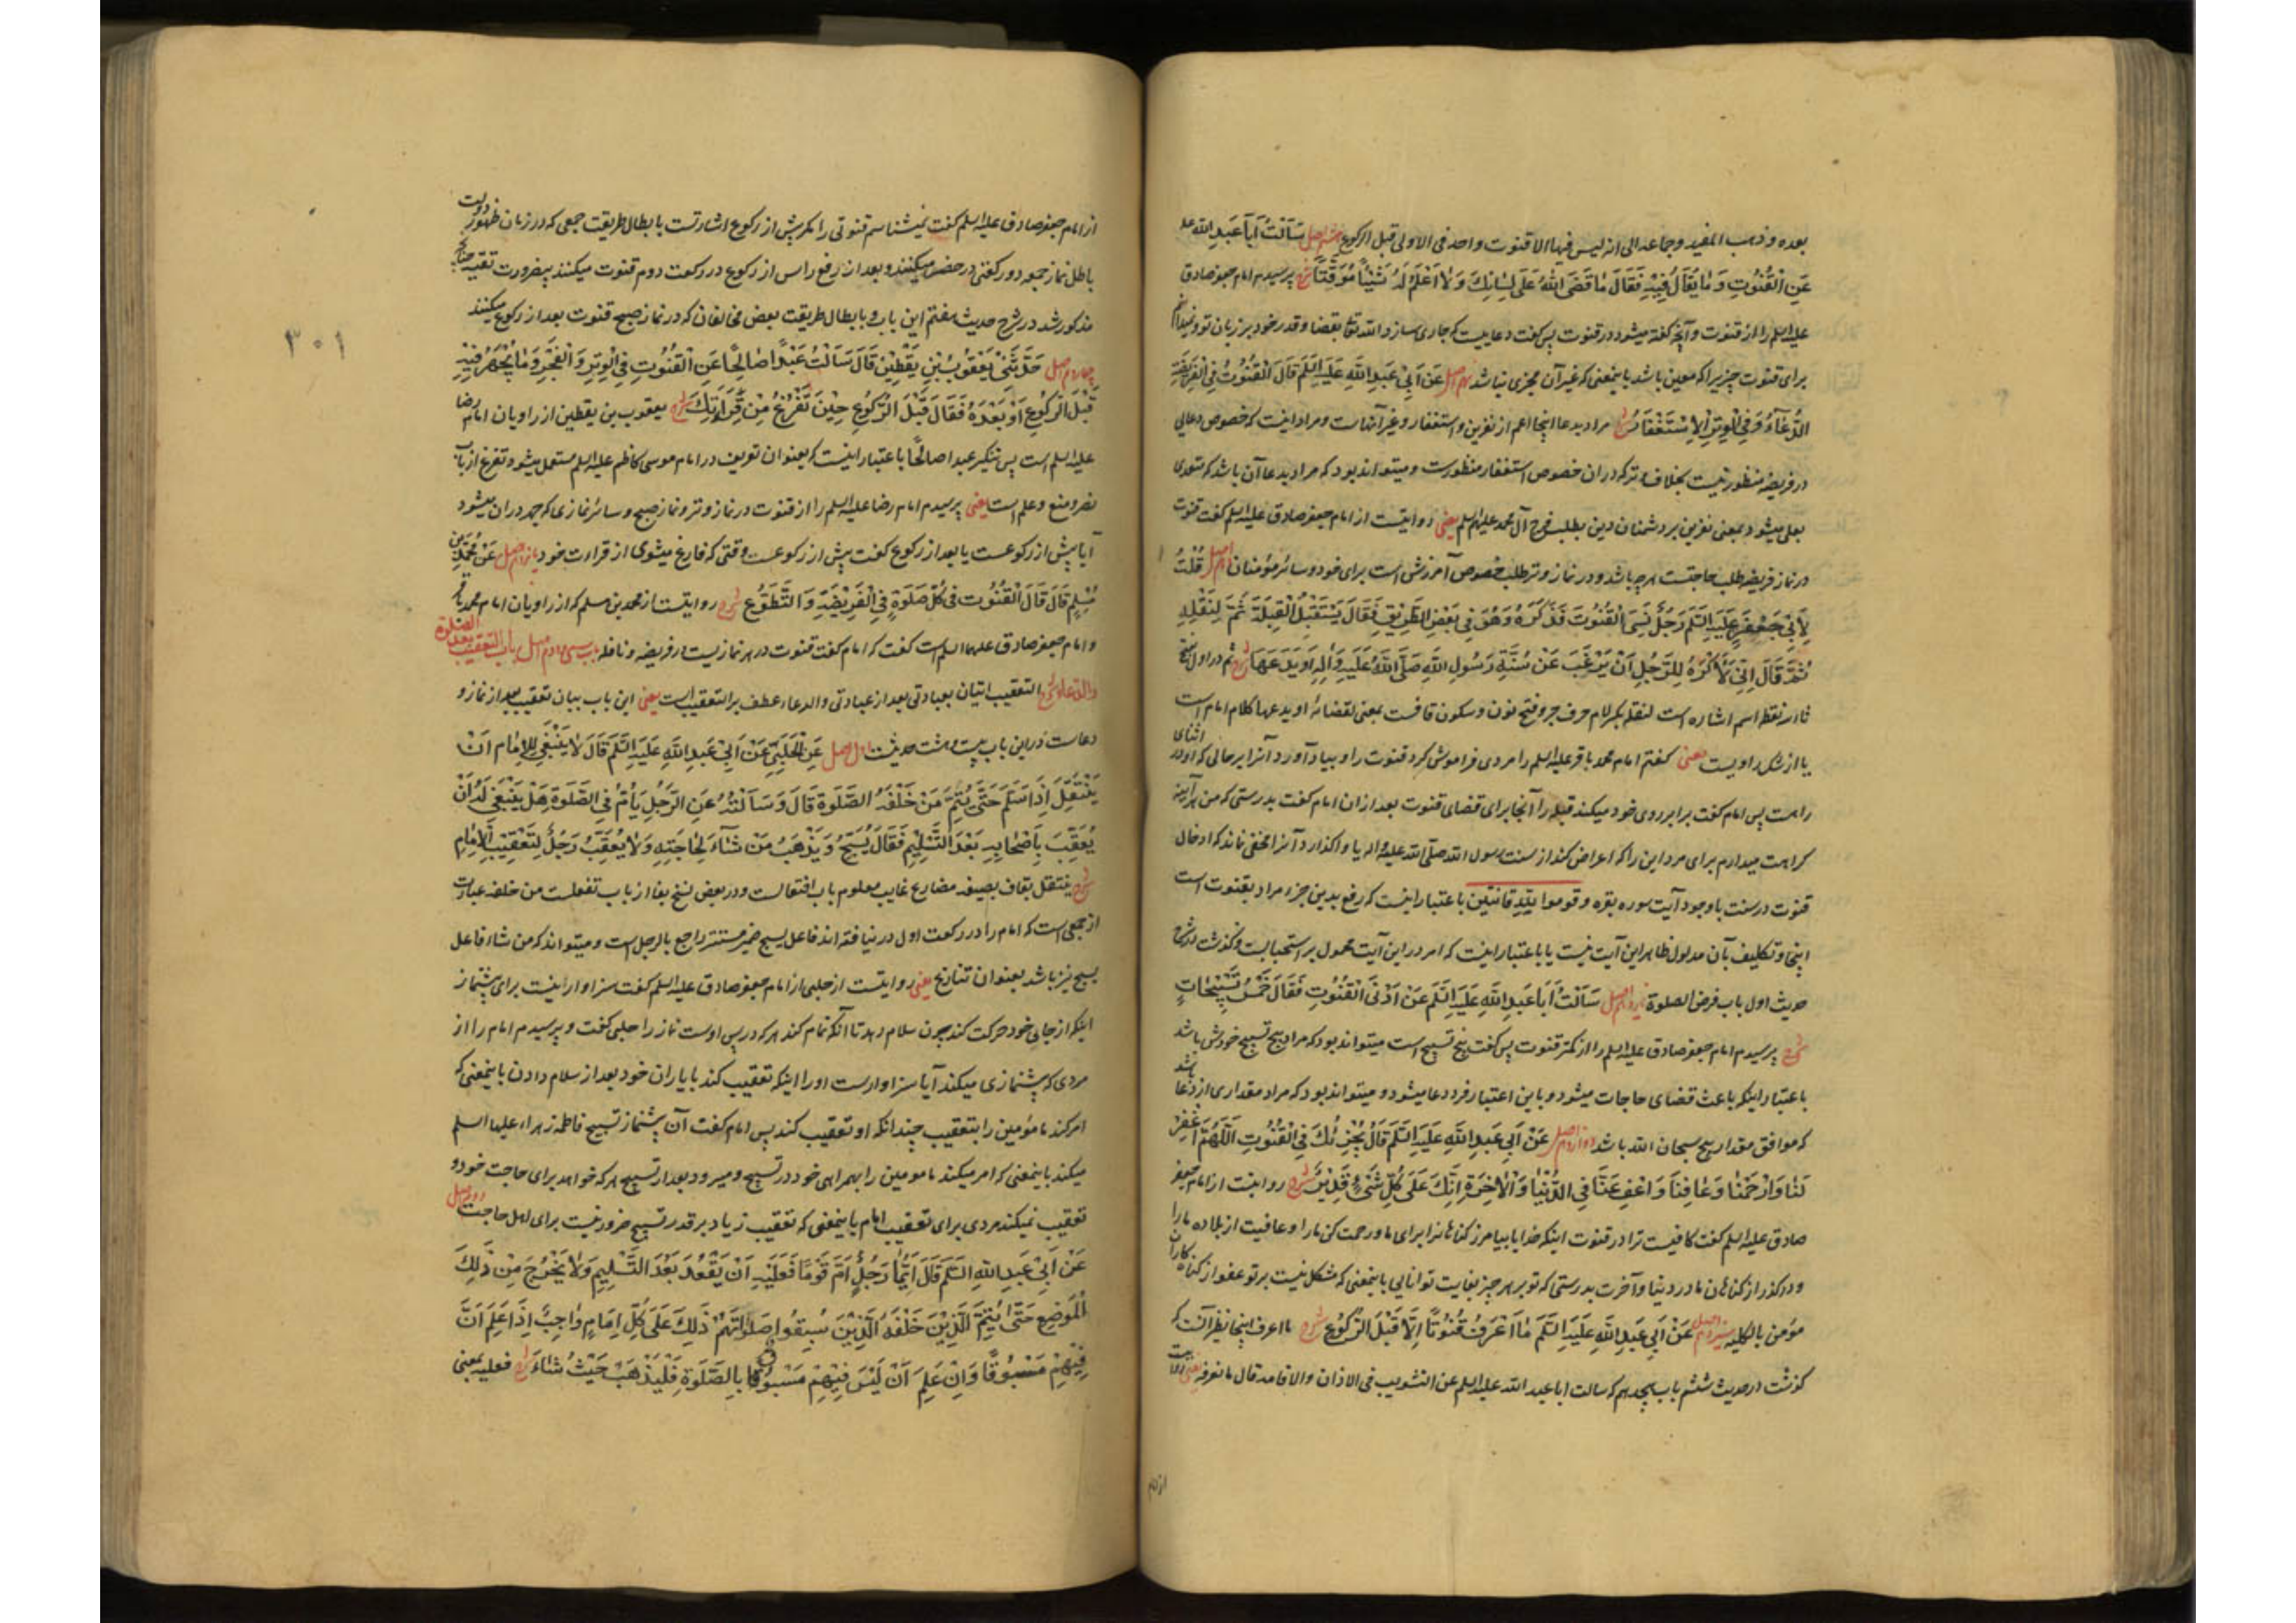 بعده و ذهب المفید و جماعه الی انه لیس فیها الا قنوت واحد فی الاولی قبل الرکوع هشتم اصل سَاَلْتُ اَبَا عَبدِ اللّه علیه
عَنِ القُنُوتِ وَ مٰا یُقٰالُ فِیهِ فَقَالَ مٰا قَضَی اللّهُ عَلَی لِسَانِكَ وَ لٰا اَعْلَمُ لَهُ شَیْئًا مُوَقَّتًا شرح پرسیدم امام جعفر صادق
علیه السلم را از قنوت و آنچه گفته میشود در قنوت پس گفت دعاییست که جاری سازد الله تعالی بقضا و قدر خود بر زبان تو و نمیدانم
برای قنوت چیزیرا که معین باشد باینمعنی که غیر آن مجزی نباشد نهم اصل عَن اَبِی عَبدِ اللّهِ عَلَیهِ السَّلَم قَالَ القُنُوتُ فِی الفَرِیضَةِ
الدُّعَآءُ وَ فِی الوِترِ الاِسْتِغْفَارُ شرح مراد بدعا اینجا اعم از نفرین و استغفار و غیر آنهاست و مراد اینست که خصوص دعایی
در فریضه منظور نیست بخلاف وتر که در ان خصوص استغفار منظورست و میتواند بود که مراد بدعا آن باشد که متعدی
بعلی میشود بمعنی نفرین بر دشمنان دین بطلب فرج آل محمد علیهم السلم یعنی روایتست از امام جعفر صادق علیه السلم گفت قنوت
در نماز فریضه طلب حاجتست هر چه باشد و در نماز وتر طلب خصوص آمرزش است برای خود و سائر مؤمنان دهم اصل قُلْتُ
لِأَبِی جَعْفَرٍ عَلَیهِ السَّلَم رَجُلٌ نَسِیَ القُنُوتَ فَذَکَرَهُ وَ هُوَ فِی بَعْضِ الطَّرِیقِ فَقَالَ یَسْتَقْبِلُ القِبلَةَ ثَمَّ لِنَقْلِهِ
ثُمَّ قَالَ اِنِّی لَأَکْرَهُ لِلرَّجُلِ اَنْ یَرْغَبَ عَنْ سُنَّةِ رَسُولِ اللّهِ صَلَّی اللّهُ عَلَیهِ وَ اٰلِهِ اَو یَدَعَهَا شرح ثم در اول بفتح
ثاء سه نقطه اسم اشاره است لنقله بکسر لام حرف جر و فتح نون و سکون قافست بمعنی لقضائه او یدعها کلام امام است
یا از شک راویست یعنی گفتم امام محمد باقر علیه السلم را مردی فراموش کرد قنوت را و بیاد آورد آنرا بر حالی که او در اثنای
راهست پس امام گفت برابر روی خود میکند قبله را آنجا برای قضای قنوت بعد از ان امام گفت بدرستی که من هر آینه
کراهت میدارم برای مرد این را که اعراض کند از سنت رسول الله صلی الله علیه و اله یا واگذارد آنرا مخفی نماند که ادخال
قنوت در سنت با وجود آیت سوره بقره و قوموا لله قانتین باعتبار اینست که رفع یدین جزء مراد بقنوت است
اینجا و تکلیف بآن مدلول ظاهر این آیت نیست یا باعتبار اینست که امر در این آیت محمول بر استحبابست و گذشت در شرح
حدیث اول باب فرض الصلوة یازدهم اصل سَاَلْتُ اَبَا عَبدِ اللّهِ عَلَیهِ السَّلَم عَن اَدْنَی القُنُوتِ فَقَالَ خَمْسُ تَسْبِیحَاتٍ
شرح پرسیدم امام جعفر صادق علیه السلم را از کمتر قنوت پس گفت پنج تسبیح است میتواند بود که مراد پنج تسبیح خودش باشد
باعتبار اینکه باعث قضای حاجات میشود و باین اعتبار فرد دعا میشود و میتواند بود که مراد مقداری از دعا باشد
که موافق مقدار پنج سبحان الله باشد دوازدهم اصل عَنْ اَبِی عَبدِ اللّهِ عَلَیهِ السَّلَم قَالَ یُجْزِئُكَ فِی القُنُوتِ اَللّهُمَّ اغْفِرْ
لَنَا وَ ارْحَمْنَا وَ عَافِنَا وَ اعْفُ عَنَّا فِی الدُّنْیَا وَ الْاٰخِرَةِ اِنَّكَ عَلَی کُلِّ شَیْءٍ قَدِیرٌ شرح روایتست از امام جعفر
صادق علیه السلم گفت کافیست ترا در قنوت اینکه خدایا بیامرز گناهانرا برای ما و رحمت کن ما را و عافیت از بلا ده ما را
و درگذر از گناهان ما در دنیا و آخرت بدرستی که تو بر هر چیز بغایت توانایی باینمعنی که مشکل نیست بر تو عفو از گناه کاران
مؤمن بالکلیه سیزدهم اصل عَنْ اَبِی عَبدِ اللّهِ عَلَیهِ السَّلَم مٰا اَعْرِفُ قُنُوتًا اِلَّا قَبْلَ الرُّکُوعِ شرح ما اعرف اینجا نظیر آنست که
گذشت در حدیث ششم باب هجدهم که سالت ابا عبد الله علیه السلم عن التثویب فی الاذان و الاقامه قال ما نعرفه یعنی روایتست
از امام
از امام جعفر صادق علیه السلم گفت نمیشناسم قنوتی را مگر پیش از رکوع اشارتست بابطال طریقت جمعی که در زمان ظهور دولت
باطل نماز جمعه دو رکعتی در حضر میکنند و بعد از رفع راس از رکوع در رکعت دوم قنوت میکنند بیضرورت تقیه چنانچه
مذکور شد در شرح حدیث هفتم این باب و بابطال طریقت بعض مخالفان که در نماز صبح قنوت بعد از رکوع میکنند
چهاردهم اصل حَدَّثَنِی یَعْقُوبُ بْنُ یَقْطِین قَالَ سَاَلْتُ عَبْدًا صَالِحًا عَنِ القُنُوتِ فِی الوِترِ وَ الفَجْرِ وَ مَا یُجْهَرُ فِیهِ
قَبْلَ الرُّکُوعِ اَوْ بَعْدَهُ فَقَالَ قَبْلَ الرُّکُوعِ حِینَ تَفْرَغُ مِنْ قِرَاءَتِكَ شرح یعقوب بن یقطین از راویان امام رضا
علیه السلم است پس تنکیر عبدا صالحًا باعتبار اینست که بعنوان تعریف در امام موسی کاظم علیه السلم مستعمل میشود تفرغ از باب
نصر و منع و علم است یعنی پرسیدم امام رضا علیه السلم را از قنوت در نماز وتر و نماز صبح و سائر نمازی که جهر در ان میشود
آیا پیش از رکوعست یا بعد از رکوع گفت پیش از رکوعست وقتی که فارغ میشوی از قراءت خود پانزدهم اصل عَنْ مُحَمَّدِ بن
مُسْلِمٍ قَالَ قَالَ القُنُوتُ فِی کُلِّ صَلٰوةٍ فِی الفَرِیضَةِ وَ التَّطَوُّعِ شرح روایتست از محمد بن مسلم که از راویان امام محمد باقر
و امام جعفر صادق علیهما السلم است گفت که امام گفت قنوت در هر نمازیست از فریضه و نافله باب سی و دوم اصل باب التعقیب بعد الصلوة
والدعاء شرح التعقیب اتیان بعبادتی بعد از عبادتی و الدعاء عطف بر التعقیب است یعنی این باب بیان تعقیب بعد از نماز و
دعاست در این باب بیست و هشت حدیثست اول اصل عَنِ الحَلَبِیِّ عَنْ اَبِی عَبدِ اللّهِ عَلَیهِ السَّلَم قَالَ لٰا یَنْبَغِی لِلاِمَامِ اَنْ
یَنْتَقِلَ اِذَا سَلَّمَ حَتَّی یُتِمَّ مَنْ خَلْفَهُ الصَّلٰوةَ قَالَ وَ سَاَلْتُهُ عَنِ الرَّجُلِ یَؤُمُّ فِی الصَّلٰوةِ هَلْ یَنْبَغِی لَهُ اَنْ
یُعَقِّبَ بِاَصْحَابِهِ بَعْدَ التَّسْلِیمِ فَقَالَ یُسَبِّحُ وَ یَذْهَبُ مَنْ شَآءَ لِحَاجَتِهِ وَ لٰا یُعَقِّبُ رَجُلٌ لِتَعْقِیبِ الاِمَامِ
شرح ینتقل بقاف بصیغه مضارع غایب معلوم باب افتعالست و در بعض نسخ بفا از باب تفعلست من خلفه عبارت
از جمعی است که امام را در رکعت اول در نیافته اند فاعل یسبح ضمیر مستتر راجع بالرجل است و میتواند که من شاء فاعل
یسبح نیز باشد بعنوان تنازع یعنی روایتست از حلبی از امام جعفر صادق علیه السلم گفت سزاوار نیست برای پیشنماز
اینکه از جای خود حرکت کند چون سلام دهد تا آنکه تمام کند هر که در پس اوست نماز را حلبی گفت و پرسیدم امام را از
مردی که پیشنمازی میکند آیا سزاوارست او را اینکه تعقیب کند با یاران خود بعد از سلام دادن باینمعنی که
امر کند مامومین را بتعقیب چندانکه او تعقیب کند پس امام گفت آن پیشنماز تسبیح فاطمه زهراء علیها السلم
میکند باینمعنی که امر میکند مامومین را بهمراهی خود در تسبیح و میرود بعد از تسبیح هر که خواهد برای حاجت خود و
تعقیب نمیکند مردی برای تعقیب امام باینمعنی که تعقیب زیاد بر قدر تسبیح ضرور نیست برای اهل حاجت دوم اصل
عَنْ اَبِی عَبدِ اللّهِ السَّلَم قَالَ اَیُّمَا رَجُلٍ اَمَّ قَوْمًا فَعَلَیْهِ اَنْ یَقْعُدَ بَعْدَ التَّسْلِیمِ وَ لٰا یَخْرُجَ مِنْ ذٰلِكَ
المَوْضِعِ حَتَّی یُتِمَّ الَّذِینَ خَلْفَهُ الَّذِینَ سُبِقُوا صَلٰوتَهُمْ ذٰلِكَ عَلَی کُلِّ اِمَامٍ وَاجِبٌ اِذَا عَلِمَ اَنَّ
فِیهِمْ مَسْبُوقًا وَ اِنْ عَلِمَ اَنْ لَیْسَ فِیهِمْ مَسْبُوقًا بِالصَّلٰوةِ فَلْیَذْهَبْ حَیْثُ شَاءَ شرح فعلیه بمعنی
۳۰۱